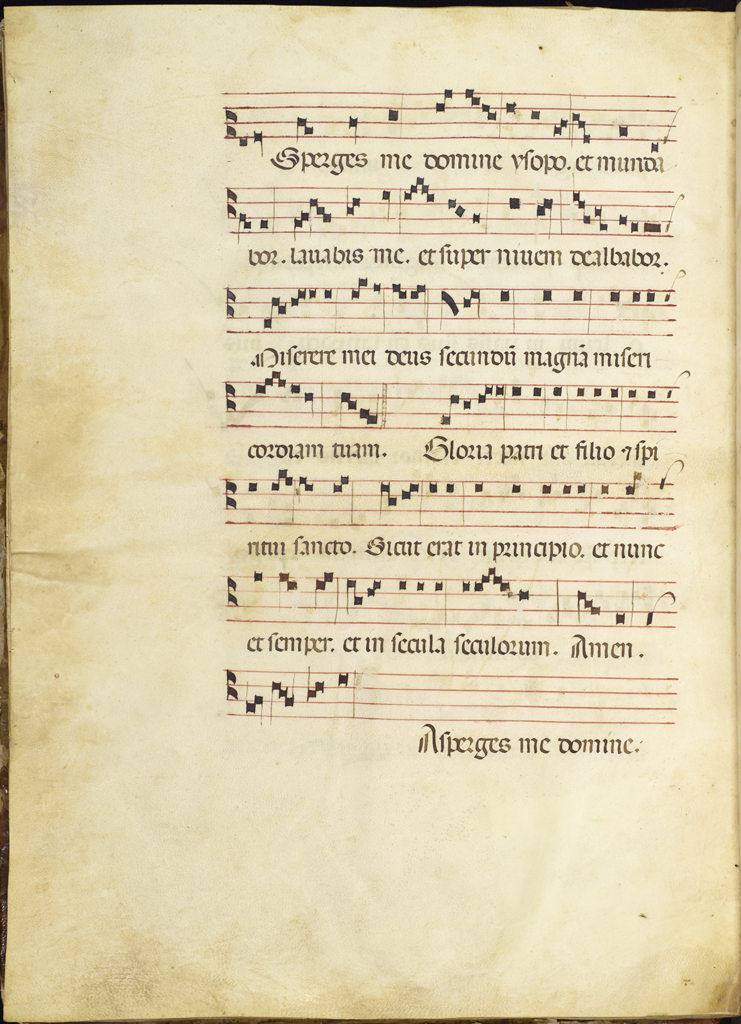 Sperges me domine ysopo. et munda
bor. lauabis me. et super niuem dealbabor.
Miserere mei deus secundū magnā miseri
cordiam tuam. Gloria patri et filio ⁊ spi
ritui sancto. Sicut erat in principio. et nunc
et semper. et in secula seculorum. Amen.
Asperges me domine.